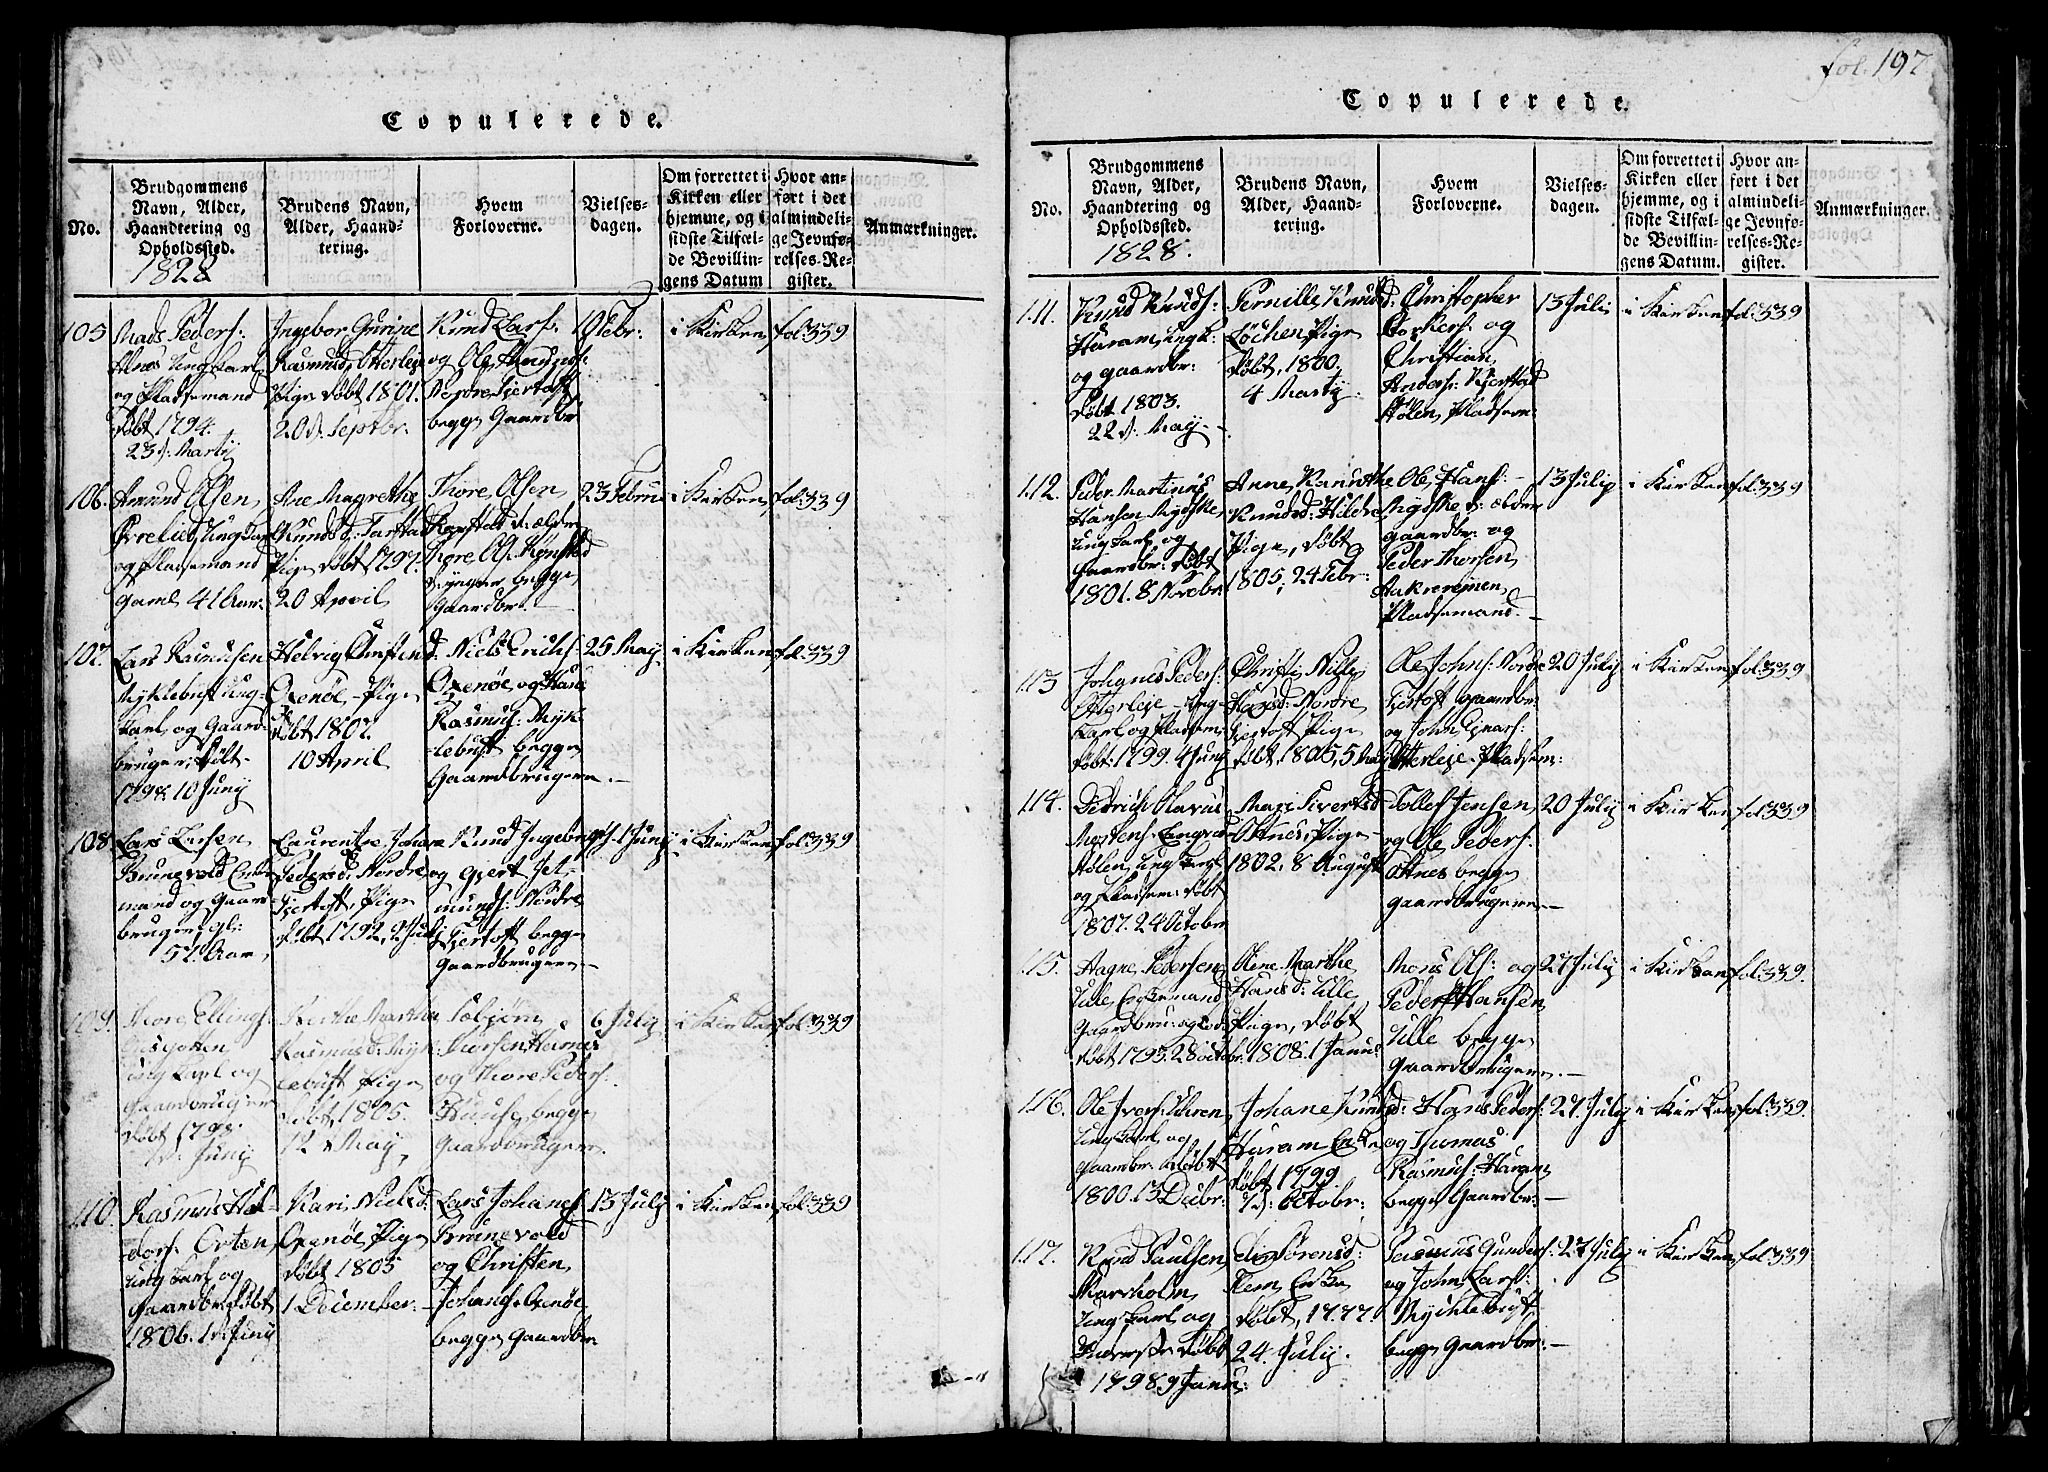 Copulerede.
No.
Brudgommens
Navn, Alder,
Haandtering og
Opholdssted.
1828
Brudens Navn,
Alder, Haand-
tering.
Hvem
Forloverne.
Vielses-
dagen.
Om forrettet i
Kirken eller
hjemme, og i
sidste Tilfæl-
de Bevillin-
gens Datum
Hvor an-
ført i det
almindeli-
ge Jevnfø-
relses-Re-
gister.
Anmærkninger.
105
Mads Peders:
Alnes Ungkarl
og Pladsemand
døbt 1794.
23 d: Martÿ
Ingebor Gurine
Rasmusd. Otterleje
Pige døbt 1801.
20 d. Septbr.
Knud Lars:
og Ole Amunds:
Nordre Fjertoft
begge Gaardbr
10 Febr:
i Kirken
fol: 339
106.
Amund Olsen,
Ungkarl
og Pladsemand
gaml 41 Aar.
Ane Magrethe
Knudsd: Farstad
Pige døbt 1797.
20 April
Thore Olsen
Rønstad d: ældre
Thore Ols: Rønstad
d: yngre begge
Gaardbr.
23 Febru
i Kirken
fol: 339
107.
Lars Rasmusen
Myklebust Ung-
karl og Gaard
bruger, døbt
1798. 10 Junÿ
Helvig Christens
Oxenöe Pige
døbt 1807.
10 April
d. Niels Erichs:
Oxenöe og Knud
Rasmus: Myk
lebust begge
Gaardbrugere.
25 May
i Kirken
fol: 339
108
Lars Larsen
Brunevold Enke
mand og Gaard
bruger gl:
57 Aar
Laurentze Johane
Pedersd: Nordre
Fjertoft, Pige
døbt 1792, 9 Juli
Knud Ingebrigts:
og Gjert Jet-
munds: Nordre
Fjertoft begge
Gaardbrugere
1 Junÿ
i Kirken
fol: 339
109.
Thore Ellings:
Ungkarl og
Gaardbruger
døbt 1798
d. Junÿ
Berthe Marthe
Rasmusd: Myk
lebust Pige
døbt, 1805.
12 May
Torbjørn
Thorsen Hernes
og Thore Peders:
Huuse begge
Gaardbrugere.
6 Julÿ
i Kirken
fol: 339
110.
Rasmus Hal-
dors: Orten,
Ungkarl og
Gaardbr. døbt
1806. 1 d: Junÿ
Kari Nielsd
Oxenöe, Pige
døbt 1805
1 December.
Lars Johans:
Brunevold
og Christen
Johans: Oxenöe
begge Gaardbr
13 Julÿ
i Kirken
fol: 339
fol: 197
Copulerede.
No.
Brudgommens
Navn, Alder,
Haandtering og
Opholdssted.
1828.
Brudens Navn,
Alder, Haand-
tering.
Hvem
Forloverne.
Vielses-
dagen.
Om forrettet i
Kirken eller
hjemme, og i
sidste Tilfæl-
de Bevillin-
gens Datum.
Hvor an-
ført i det
almindeli-
ge Jevnfø-
relses-Re-
gister.
Anmærkninger.
111.
Knud Knuds:
Haram, ungk:
og gaardbr:
døbt 1803.
22 d: May
Pernille Knudsd:
Løchen Pige
døbt, 1800.
4 Martÿ
Christopher
og
Christian
Anders: Kjerstad
Hølen, Pladsem:
13 Julÿ
i Kirken
fol: 339
112.
Peder Martinus
Hansen Rydske
ungkarl og
Gaardbr: døbt
1801. 8 Novebr
Anne Kanuthe
Knudsd: Hildre
Pige, døbt
1805, 24 Febr:
Ole Hans:
Rydske d: ældre
gaardbr: og
Peder Thorsen
Aakrereinen
Pladsemand.
13 Julÿ
i Kirken
fol: 339
113
Johanes Peders:
Otterleje Ung-
karl og Pladsem:
døbt: 1799. 4 Junÿ
Christi Nille
Hansd: Nordre
Fjertoft Pige
døbt, 1805, 5
Ole Johns: Nordre
Fjertoft gaardbr.
og John Ejnars:
Otterleje Pladsem:
20 Julÿ
i Kirken
fol: 339
114.
Didrich Clavus
Mortens:
Hølen, Ungkarl
og Pladsem: døbt
1807. 24 October
Mari Siversd
Otnes, Pige
1802. 8 August
Tollef Jensen
og Ole Peders:
Otnes begge
gaardbrugere
20 Julÿ
i Kirken
fol: 339
115.
Aagne Pedersen
Ulle Enkemand
Gaardbru:
døbt 1795. 28 octob:
Olene Marthe
Hansd: Ulle
Pige, døbt
1808. 1 Janu:
Mons Ols: og
Peder Hansen
Ulle begge
Gaardbrugere.
27 Julÿ
i Kirken
fol: 339.
116.
Ole Ivers: Uhren,
Ungkarl og
gaardbr. døbt
1800. 13 Decbr:
Johane Knudsd:
Haram Enke
døbt 1799
7 d: Octobr:
Hans Peders:
og Thomas
Rasmus: Haram
begge Gaardbr:
27. Julÿ
i Kirken
fol: 339.
117.
Knud Paulsen
Marsholm
Ungkarl og
døbt
1798 9 Janu:
Sørensd:
Kem, Enke
døbt, 1777.
24. Julÿ.
Rasmus Gunders:
og John Lars:
Myklebust
begge Gaardbr:
27 Julÿ
i Kirken
fol: 339